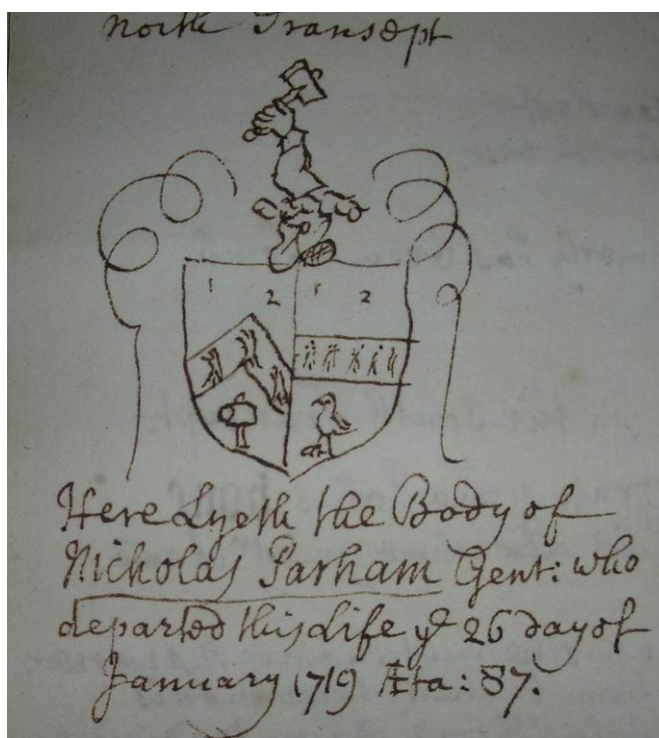 North Transept
1 2 1 2
Here Lyeth the Body of
Nicholas Parham Gent: who
departed this Life yͤ 26 day of
January 1719 Æta: 87.